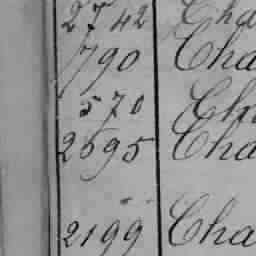 2742 Cha
790 Cha
570 Cha
2695 Cha
2199 Cha